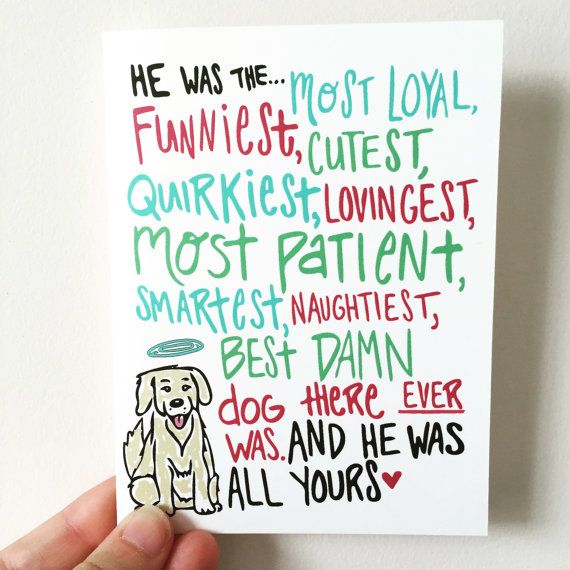 HE WAS THE... MOST LOYAL,
FUNNIEST, CUTEST,
QUIRKIEST, LOVINGEST,
MOST PATIENT,
SMARTEST, NAUGHTIEST,
BEST DAMN
DOG THERE EVER
WAS. AND HE WAS
ALL YOURS